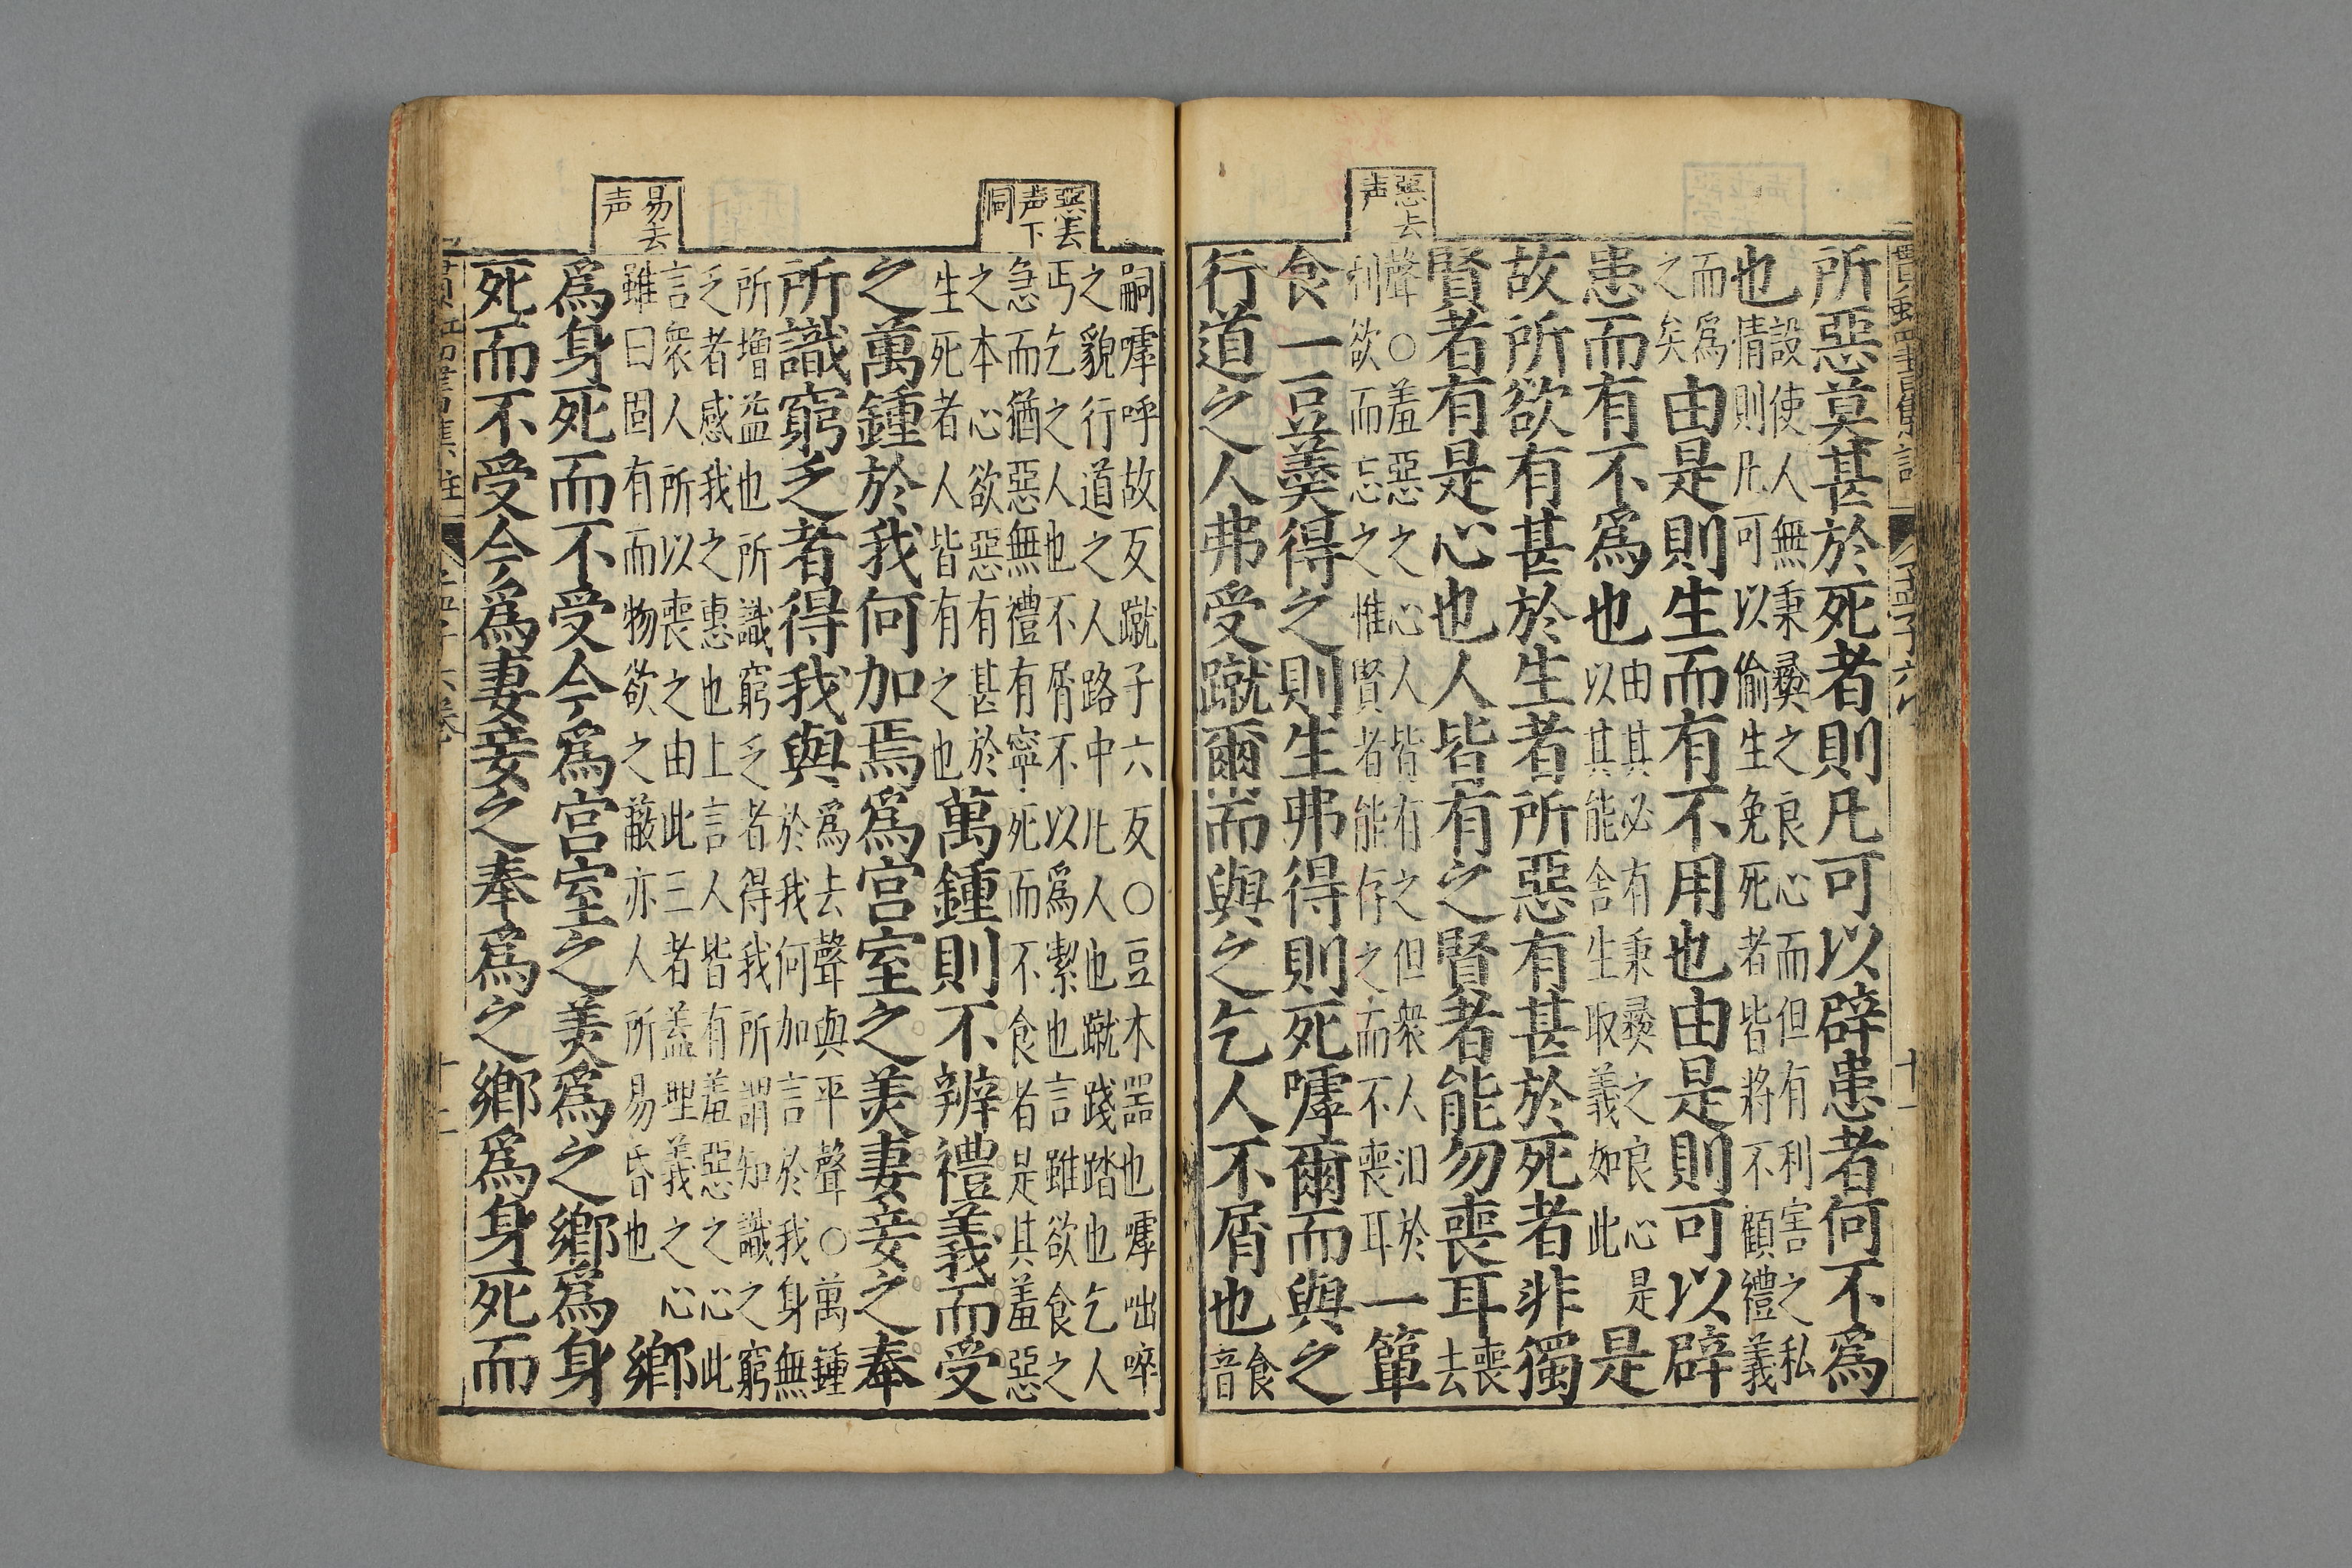 所惡莫甚於死者則凡可以辟患者何不爲
也設使人無秉彝之良心而但有利害之私
情則凡可以偷生免死者皆將不顧禮義
而爲
之矣
由是則生而有不用也由是則可以辟
患而有不爲也
由其必有秉彝之良心是
以其能舍生取義如此
是
故所欲有甚於生者所惡有甚於死者非獨
賢者有是心也人皆有之賢者能勿喪耳
喪
去
聲○羞惡之心人皆有之但衆人汨於
利欲而忘之惟賢者能存之而不喪耳
一簞
食一豆羹得之則生弗得則死嘑爾而與之
行道之人弗受蹴爾而與之乞人不屑也
食
音
惡去
声
孟子六
十一
嗣嘑呼故反蹴子六反○豆木器也嘑咄啐
之貌行道之人路中凡人也蹴踐踏也乞人
丐乞之人也不屑不以爲潔也言雖欲食之
急而猶惡無禮有寧死而不食者是其羞惡
之本心欲惡有甚於
生死者人皆有之也
萬鍾則不辨禮義而受
之萬鍾於我何加焉爲宮室之美妻妾之奉
所識窮乏者得我與
爲去聲與平聲○萬鍾
於我何加言於我身無
所增益也所識窮乏者得我所謂知識之窮
乏者感我之惠也上言人皆有羞惡之心此
言衆人所以喪之由此三者盖理義之心
雖曰固有而物欲之蔽亦人所易昏也
鄉
爲身死而不受今爲宮室之美爲之鄉爲身
死而不受今爲妻妾之奉爲之鄉爲身死而
惡去
声下
同
易去
声